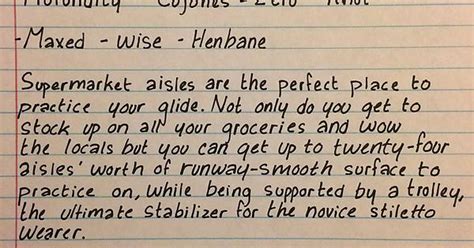 - Maxed - Wise - Henbane
Supermarket aisles are the perfect place to
practice your glide. Not only do you get to
stock up on all your groceries and wow
the locals but you can get up to twenty-four
aisles' worth of runway-smooth surface to
practice on, while being supported by a trolley,
the ultimate stabilizer for the novice stiletto
wearer.